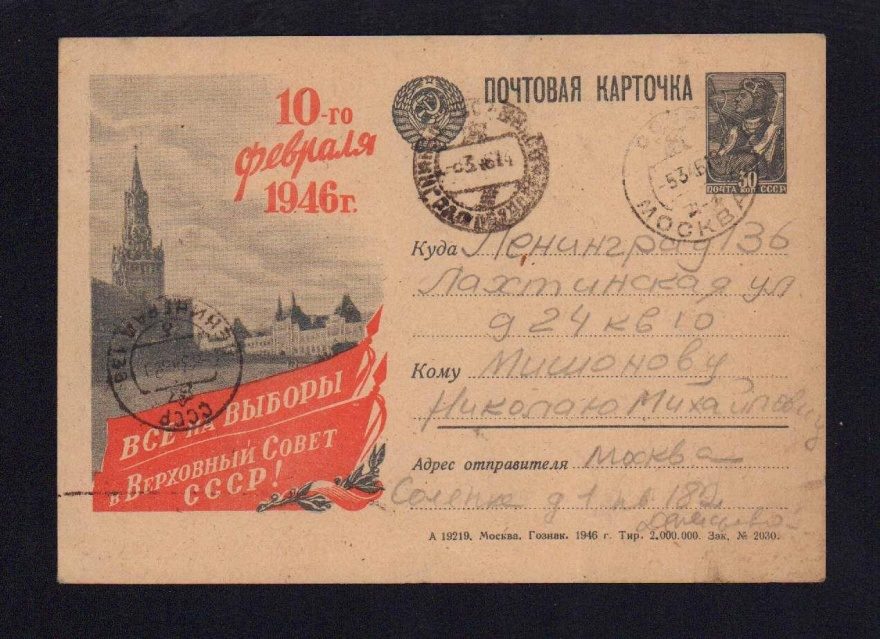 10-го
февраля
1946 г.
ВСЕ НА ВЫБОРЫ
в ВЕРХОВНЫЙ СОВЕТ
СССР!
ПОЧТОВАЯ КАРТОЧКА
30
ПОЧТА КОП СССР
МОСКВА
ЛЕНИНГРАД
СССР
Куда Ленинград 136
Лахтинская ул
д 24 кв 10
Кому Мишонову
Николаю Михайловичу
Адрес отправителя Москва
д 1
А 19219. Москва. Гознак. 1946 г. Тир. 2.000.000. Зак. № 2030.